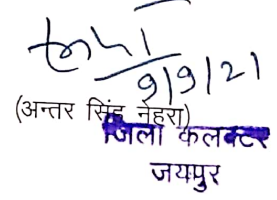 9/9/21
(अन्तर सिंह नेहरा)
जिला कलक्टर
जयपुर